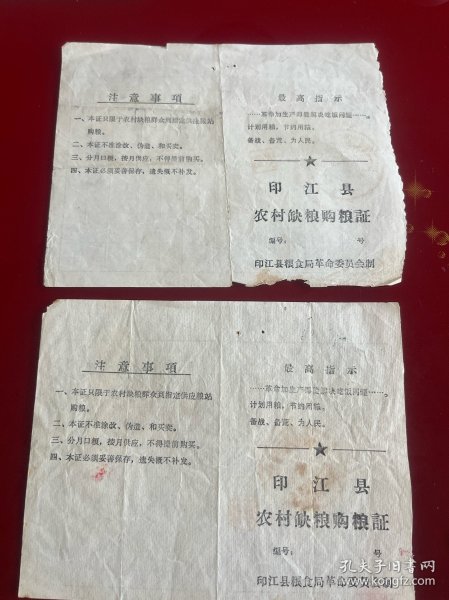 注意事項
一、本证只限于农村缺粮群众到指定供应粮站
购粮。
二、本证不准涂改、伪造、和买卖。
三、分月口粮，按月供应，不得提前购买。
四、本证必须妥善保存，遗失概不补发。
最高指示
……革命加生产即能解决吃饭问题……。
计划用粮，节约用粮。
备战、备荒、为人民。
印江县
农村缺粮购粮証
编号： 号
印江县粮食局革命委员会制
注意事項
一、本证只限于农村缺粮群众到指定供应粮站
购粮。
二、本证不准涂改、伪造、和买卖。
三、分月口粮，按月供应，不得提前购买。
四、本证必须妥善保存，遗失概不补发。
最高指示
……革命加生产即能解决吃饭问题……。
计划用粮，节约用粮。
备战、备荒、为人民。
印江县
农村缺粮购粮証
编号： 号
印江县粮食局革命委员会制
孔夫子旧书网
www.kongfz.com